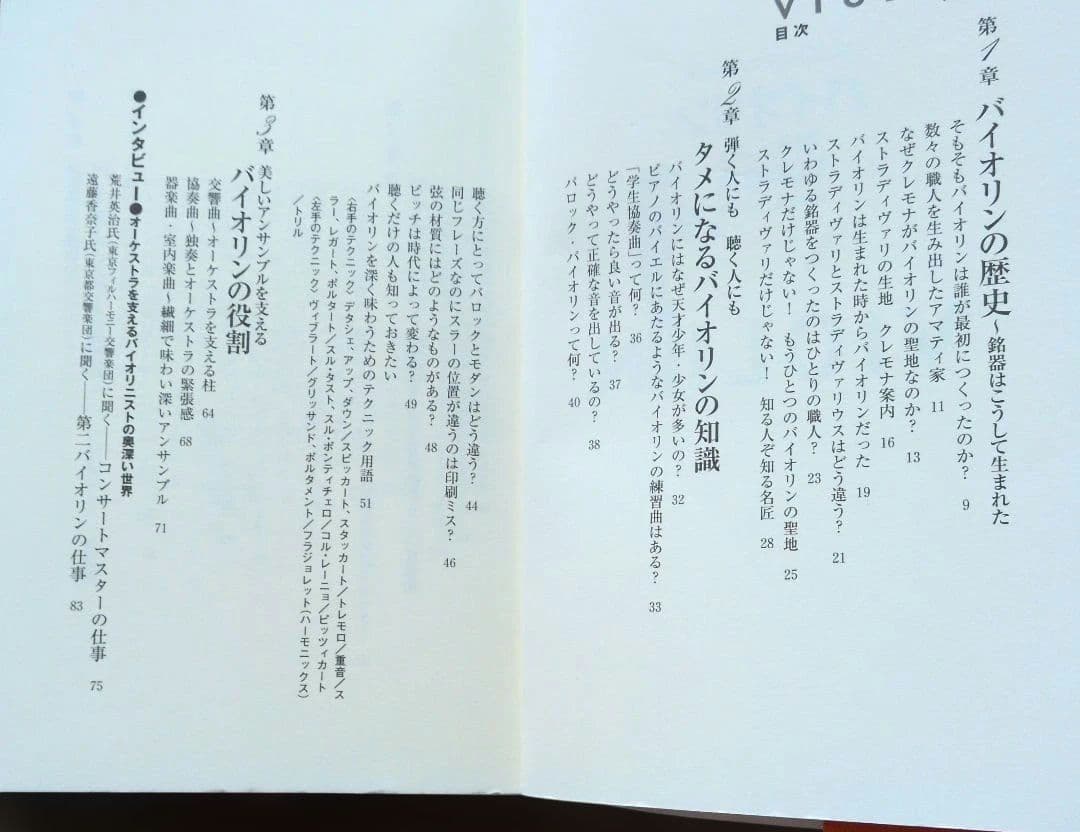 目次
第1章 バイオリンの歴史～銘器はこうして生まれた
そもそもバイオリンは誰が最初につくったのか? 9
数々の職人を生み出したアマティ家 11
なぜクレモナがバイオリンの聖地なのか? 13
ストラディヴァリの生地 クレモナ案内 16
バイオリンは生まれた時からバイオリンだった 19
ストラディヴァリとストラディヴァリウスはどう違う? 21
いわゆる銘器をつくったのはひとりの職人? 23
クレモナだけじゃない! もうひとつのバイオリンの聖地 25
ストラディヴァリだけじゃない! 知る人ぞ知る名匠 28
第2章 弾く人にも 聴く人にも
タメになるバイオリンの知識
バイオリンにはなぜ天才少年・少女が多いの? 32
ピアノのバイエルにあたるようなバイオリンの練習曲はある? 33
「学生協奏曲」って何? 36
どうやったら良い音が出る? 37
どうやって正確な音を出しているの? 38
バロック・バイオリンって何? 40
聴く方にとってバロックとモダンはどう違う? 44
同じフレーズなのにスラーの位置が違うのは印刷ミス? 46
弦の材質にはどのようなものがある? 48
ピッチは時代によって変わる? 49
聴くだけの人も知っておきたい
バイオリンを深く味わうためのテクニック用語 51
〈右手のテクニック〉デタシェ、アップ、ダウン/スピッカート、スタッカート/トレモロ/重音/ス
ラー、レガート、ポルタート/スル・タスト、スル・ポンティチェロ/コル・レーニョ/ピッツィカート
〈左手のテクニック〉ヴィブラート/グリッサンド、ポルタメント/フラジョレット(ハーモニックス)
/トリル
第3章 美しいアンサンブルを支える
バイオリンの役割
交響曲～オーケストラを支える柱 64
協奏曲～独奏とオーケストラの緊張感 68
器楽曲・室内楽曲～繊細で味わい深いアンサンブル 71
●インタビュー●オーケストラを支えるバイオリニストの奥深い世界
荒井英治氏(東京フィルハーモニー交響楽団)に聞く――コンサートマスターの仕事 75
遠藤香奈子氏(東京都交響楽団)に聞く――第二バイオリンの仕事 83